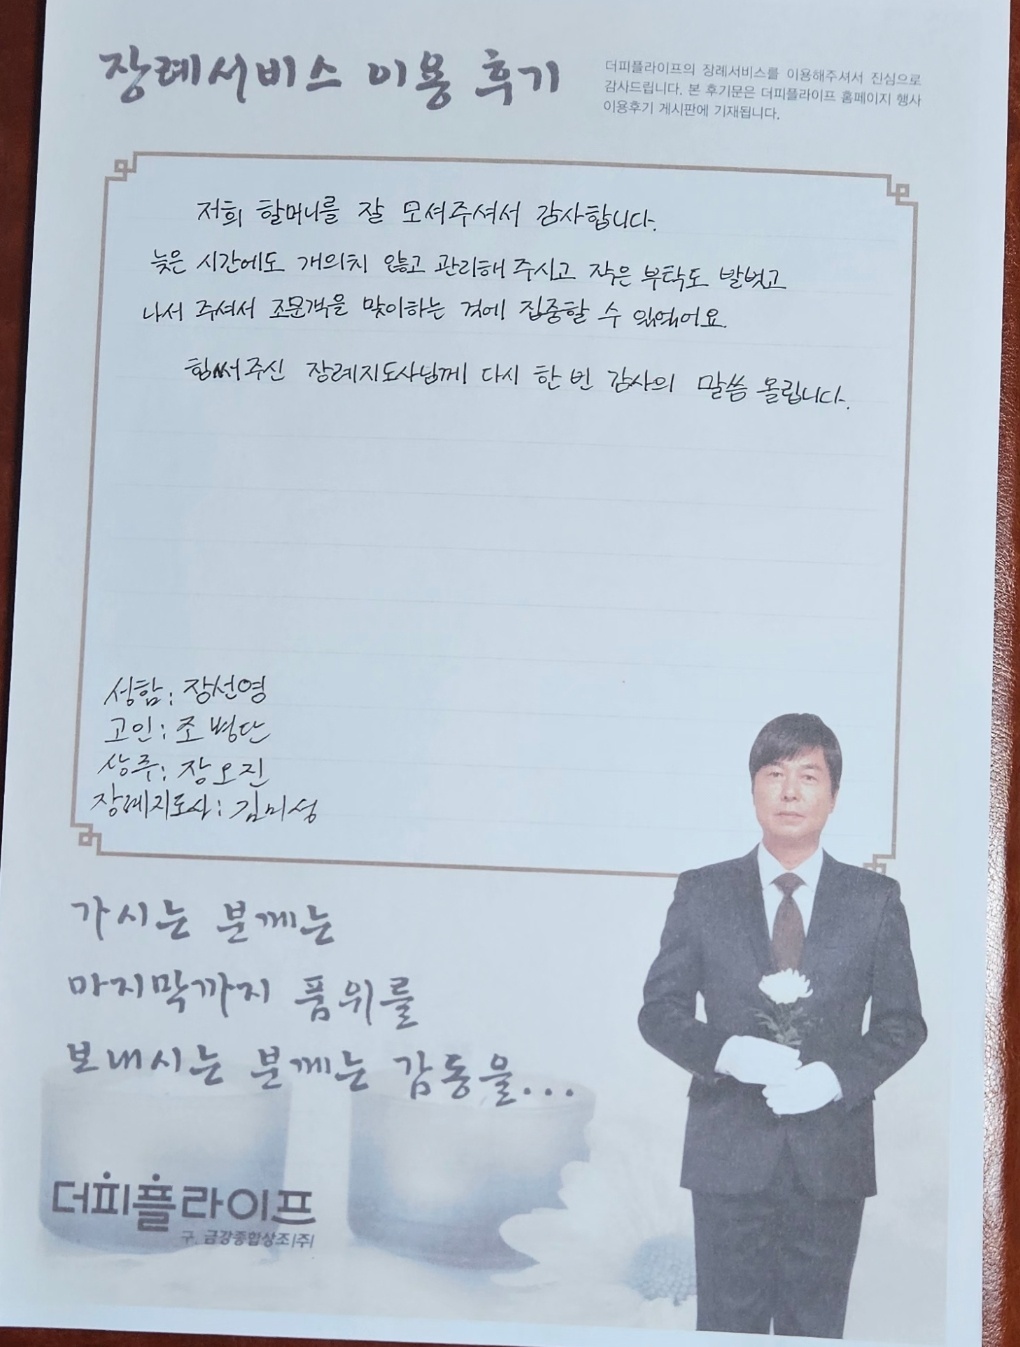 장례서비스 이용 후기
더피플라이프의 장례서비스를 이용해주셔서 진심으로
감사드립니다. 본 후기문은 더피플라이프 홈페이지 행사
이용후기 게시판에 기재됩니다.
저희 할머니를 잘 모셔주셔서 감사합니다.
늦은 시간에도 개의치 않고 관리해 주시고 작은 부탁도 발벗고
나서 주셔서 조문객을 맞이하는 것에 집중할 수 있었어요.
힘써주신 장례지도사님께 다시 한 번 감사의 말씀 올립니다.
성함: 장선영
고인: 조병단
상주: 장오진
장례지도사: 김미성
가시는 분께는
마지막까지 품위를
보내시는 분께는 감동을...
더피플라이프
구. 금강종합상조(주)